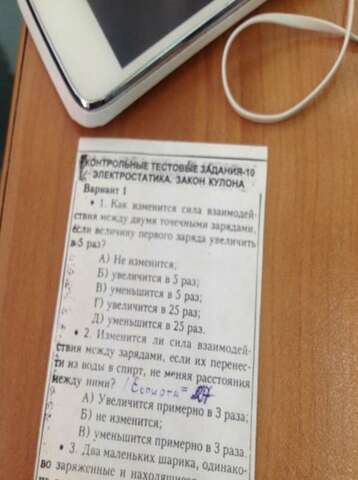 КОНТРОЛЬНЫЕ ТЕСТОВЫЕ ЗАДАНИЯ-10
ЭЛЕКТРОСТАТИКА. ЗАКОН КУЛОНА
Вариант 1
• 1. Как изменится сила взаимодей-
ствия между двумя точечными зарядами,
если величину первого заряда увеличить
в 5 раз?
А) Не изменится;
Б) увеличится в 5 раз;
В) уменьшится в 5 раз;
Г) увеличится в 25 раз;
Д) уменьшится в 25 раз.
• 2. Изменится ли сила взаимодей-
ствия между зарядами, если их перенес-
ти из воды в спирт, не меняя расстояния
между ними? / Eспирта =
А) Увеличится примерно в 3 раза;
Б) не изменится;
В) уменьшится примерно в 3 раза.
• 3. Два маленьких шарика, одинако-
во заряженные и находящиеся